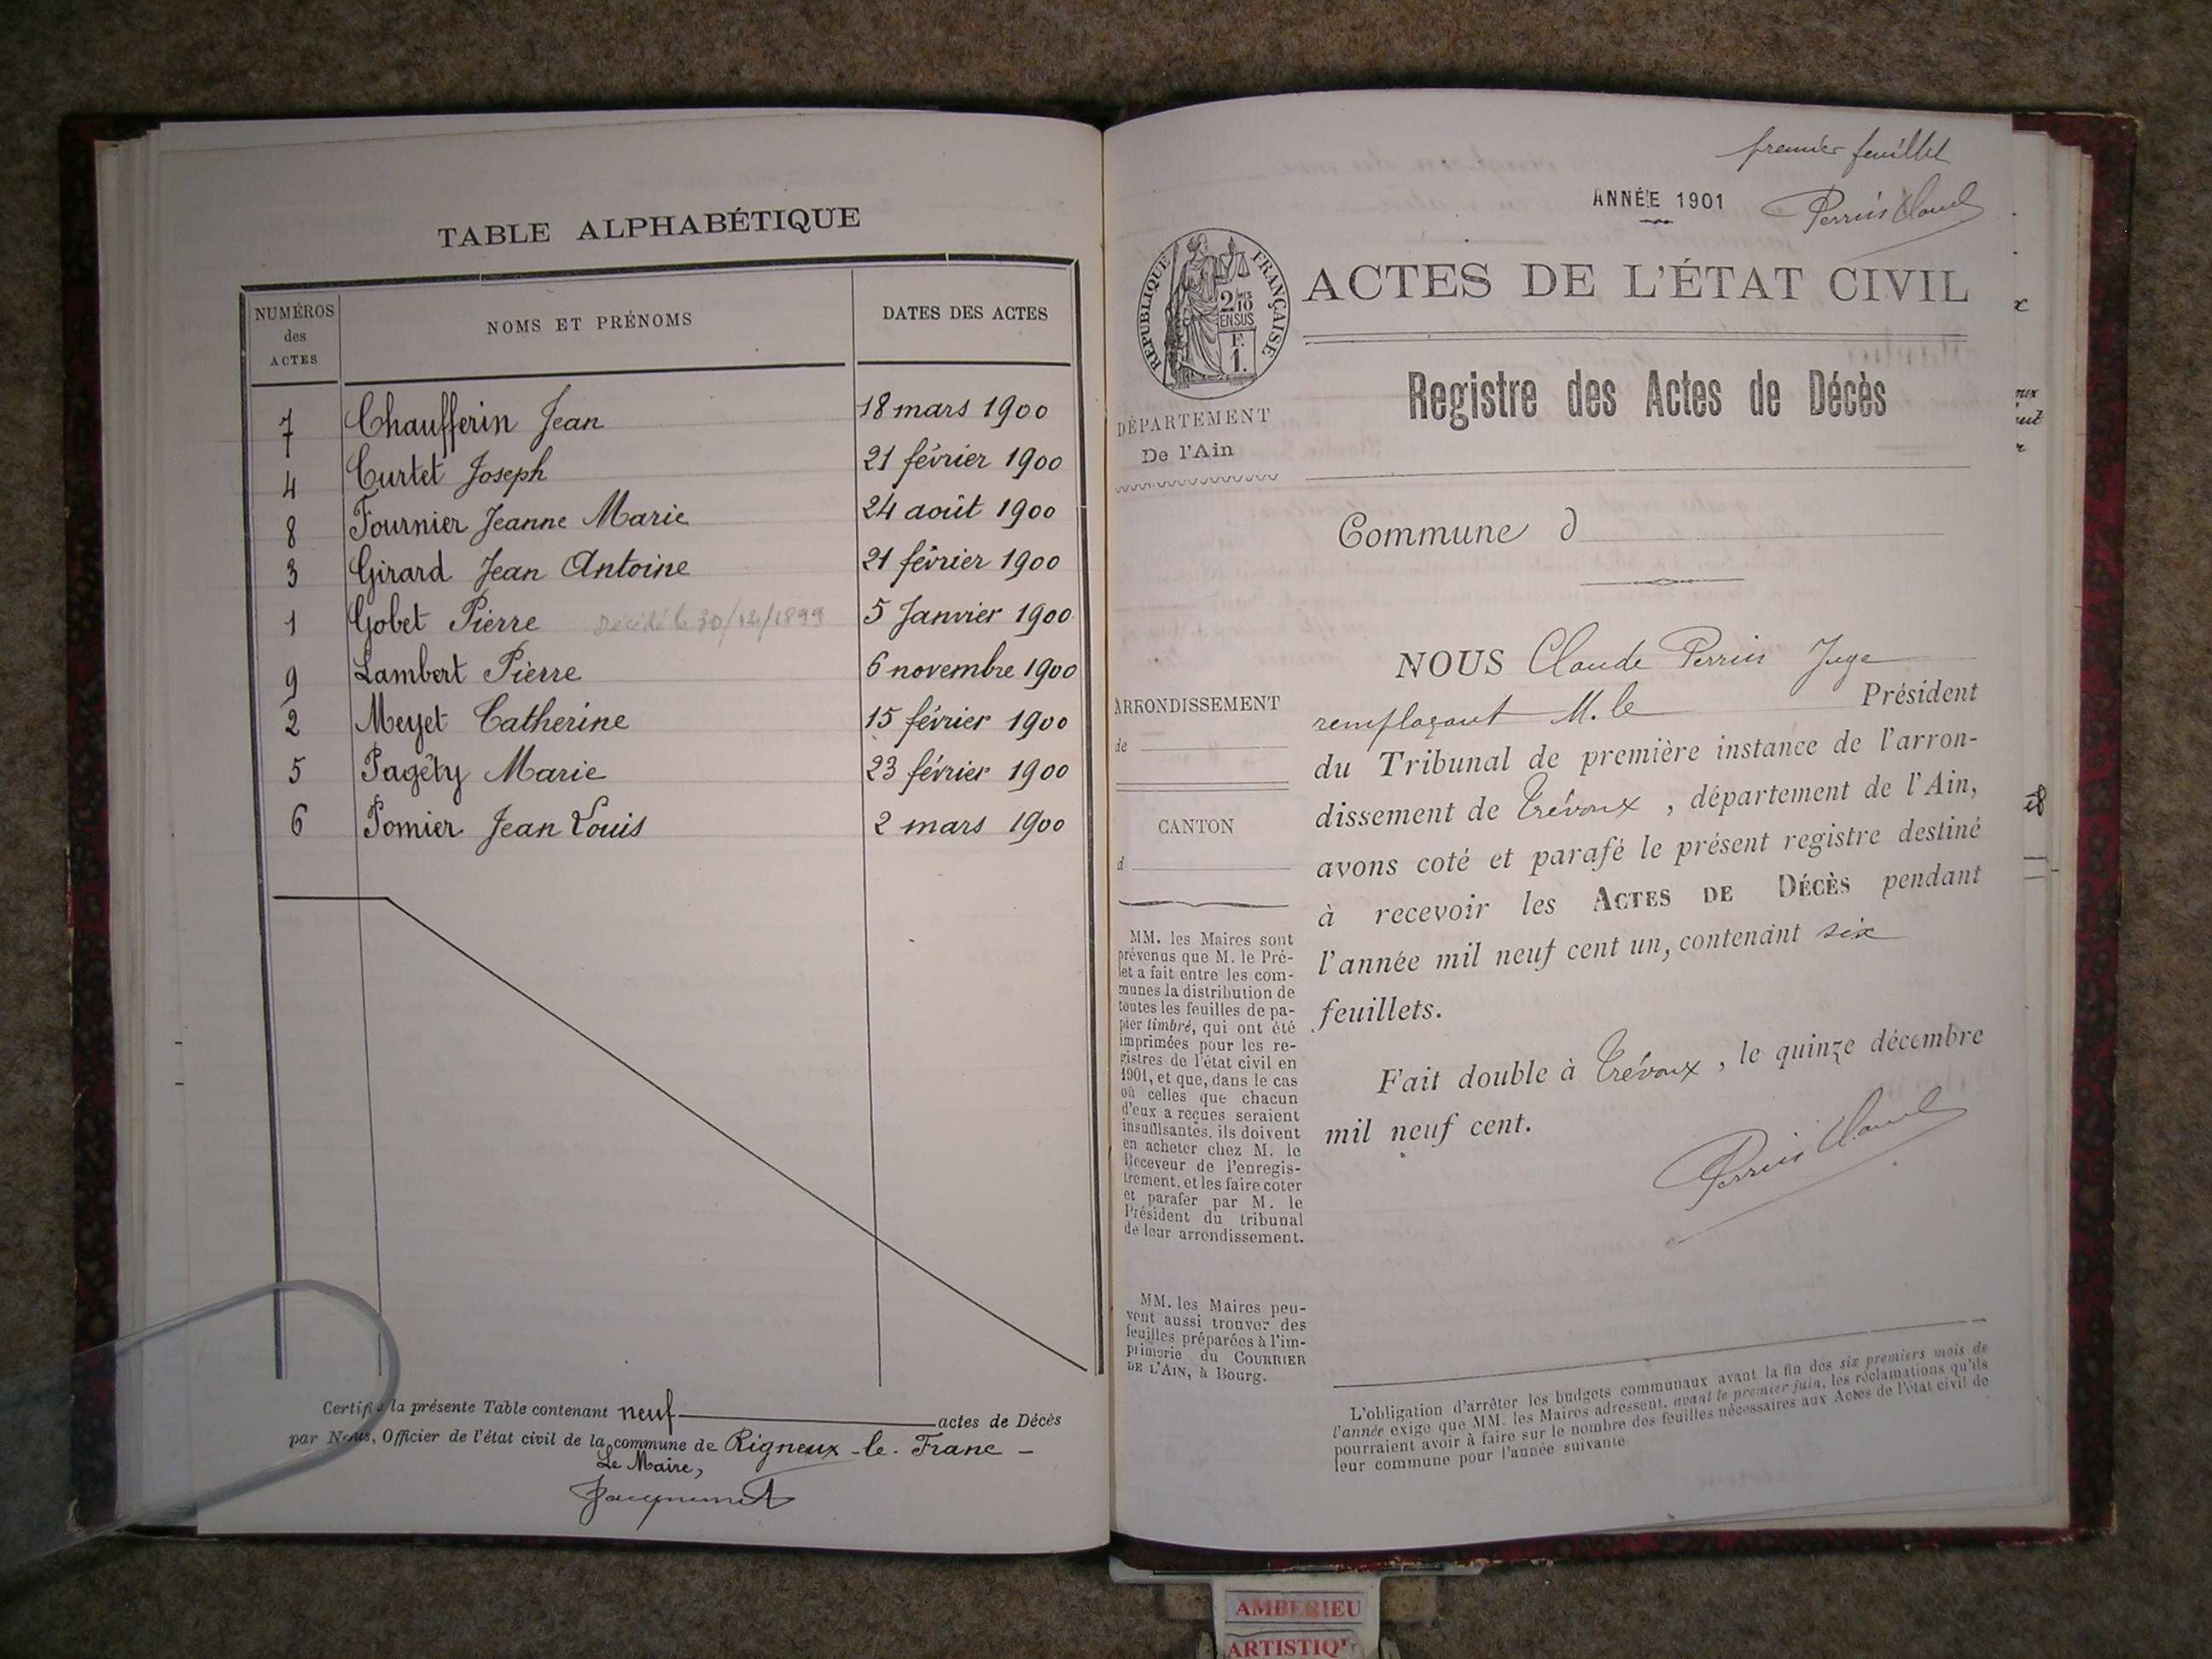 TABLE ALPHABÉTIQUE
NUMÉROS des ACTES
NOMS ET PRÉNOMS
DATES DES ACTES
7 Chaufferin Jean 18 mars 1900
4 Curtet Joseph 21 février 1900
8 Fournier Jeanne Marie 24 août 1900
3 Girard Jean Antoine 21 février 1900
1 Gobet Pierre Décédé le 30/12/1899 5 Janvier 1900
9 Lambert Pierre 6 novembre 1900
2 Meyet Catherine 15 février 1900
5 Pagéty Marie 23 février 1900
6 Pomier Jean Louis 2 mars 1900
Certifié la présente Table contenant neuf actes de Décès
par Nous, Officier de l'état civil de la commune de Rigneux-le-Franc -
Le Maire,
premier feuillet
ANNÉE 1901
Perrin Claude
RÉPUBLIQUE FRANÇAISE
2/10 MES
EN SUS
F.
1.
ACTES DE L'ÉTAT CIVIL
Registre des Actes de Décès
DÉPARTEMENT
De l'Ain
Commune d
NOUS Claude Perrin Juge
remplaçant M. le Président
du Tribunal de première instance de l'arron-
dissement de Trévoux, département de l'Ain,
avons coté et parafé le présent registre destiné
à recevoir les ACTES DE DÉCÈS pendant
l'année mil neuf cent un, contenant six
feuillets.
Fait double à Trévoux, le quinze décembre
mil neuf cent.
Perrin Claude
ARRONDISSEMENT
de
CANTON
d
MM. les Maires sont
prévenus que M. le Pré-
fet a fait entre les com-
munes la distribution de
toutes les feuilles de pa-
pier timbré, qui ont été
imprimées pour les re-
gistres de l'état civil en
1901, et que, dans le cas
où celles que chacun
d'eux a reçues seraient
insuffisantes, ils doivent
en acheter chez M. le
Receveur de l'enregis-
trement, et les faire coter
et parafer par M. le
Président du tribunal
de leur arrondissement.
MM. les Maires peu-
vent aussi trouver des
feuilles préparées à l'im-
primerie du COURRIER
DE L'AIN, à Bourg.
L'obligation d'arrêter les budgets communaux avant la fin des six premiers mois de
l'année exige que MM. les Maires adressent, avant le premier juin, les réclamations qu'ils
pourraient avoir à faire sur le nombre des feuilles nécessaires aux Actes de l'état civil de
leur commune pour l'année suivante
AMBERIEU
ARTISTIQU